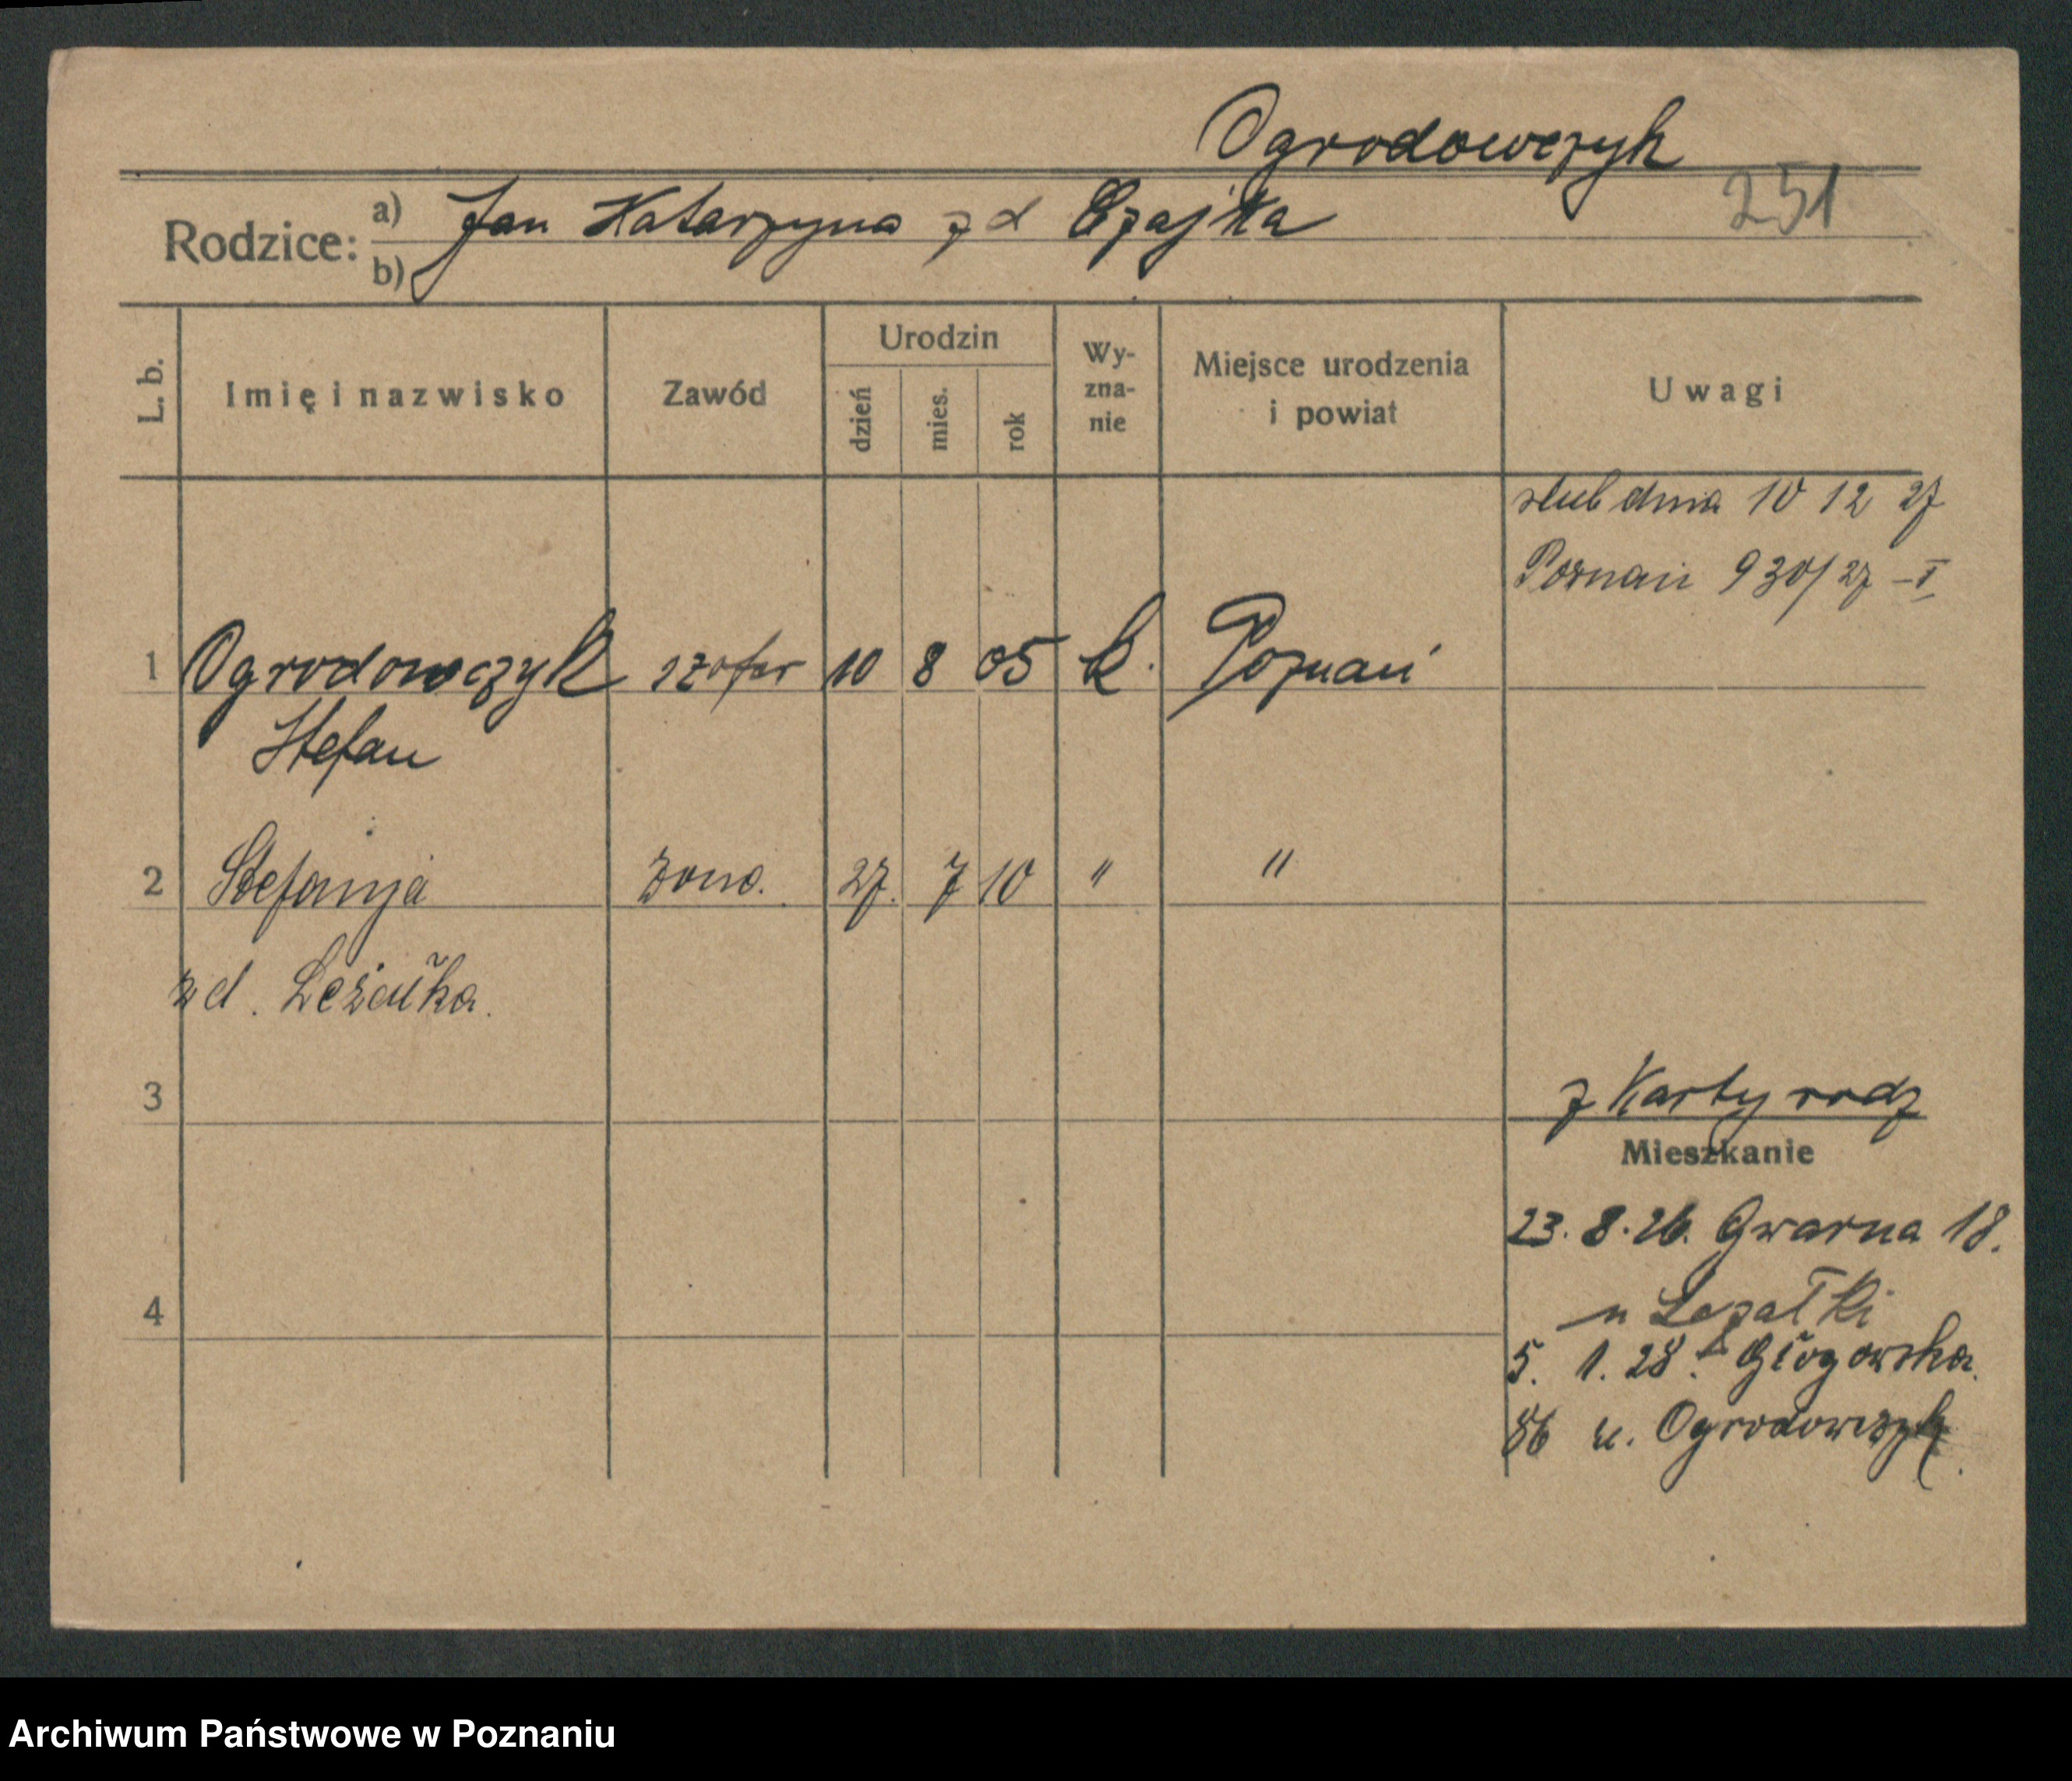 Ogrodowczyk
251
Rodzice: a) Jan Katarzyna z d Czajka
b)
L. b. Imię i nazwisko Zawód Urodzin dzień mies. rok Wy-zna-nie Miejsce urodzenia i powiat Uwagi
ślub dnia 10 12 27
Poznań 930/27 - I
1 Ogrodowczyk szofer 10 8 05 k. Poznań
Stefan
2 Stefanja żona. 27. 7 10 " "
z d.
3
z Karty rodz
Mieszkanie
23. 8. 26. Gwarna 18.
4
u
5. 1. 28. Głogowska.
86 u. Ogrodowczyk.
Archiwum Państwowe w Poznaniu